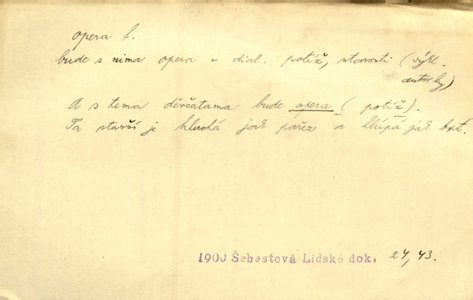 opera f.
bude s nima opera v dial. potíž, starosti (výkl.
autorky)
A s tema děvčatama bude opera (potíž).
Ta starší je hluchá jak pařez a hlúpá jak bot.
1900 Šebestová Lidské dok. 24, 43.